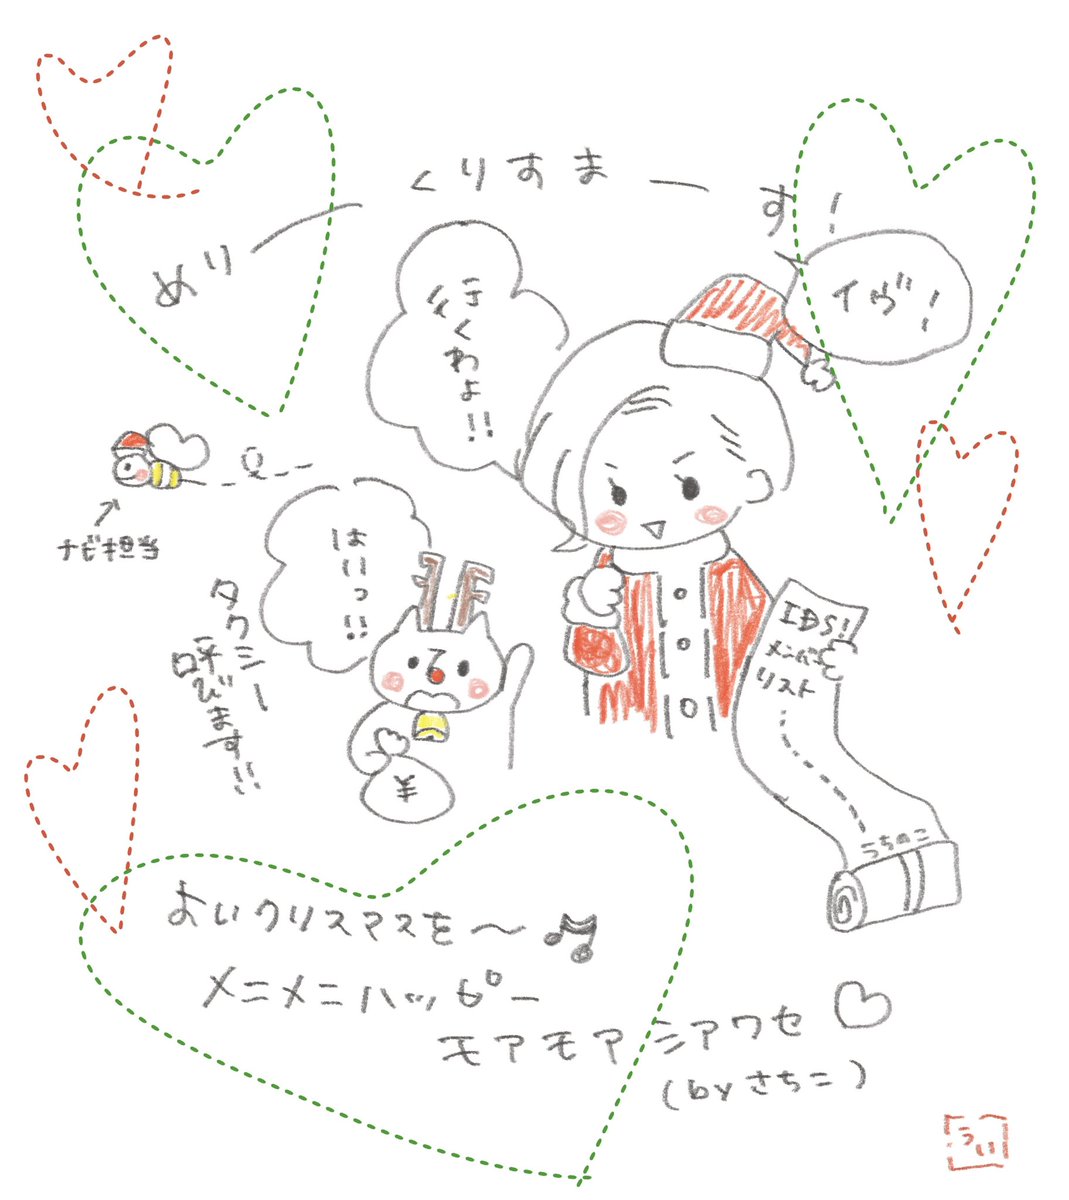 めりーくりすまーす!
イヴ!
行くわよ!!
ナビ担当
はいっ!!
タクシー
呼びます!!
¥
IBS!
メンバー
リスト
うちのこ
よいクリスマスを〜♫
メニメニハッピー
モアモアシアワセ♡
(byさちこ)
うい